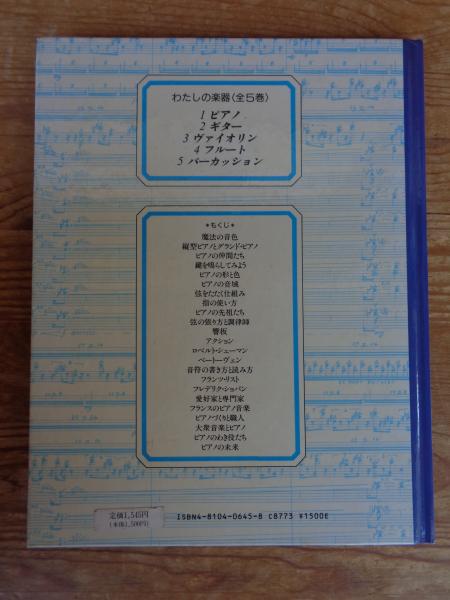 わたしの楽器〈全5巻〉
1 ピアノ
2 ギター
3 ヴァイオリン
4 フルート
5 パーカッション
*もくじ*
魔法の音色
縦型ピアノとグランド・ピアノ
ピアノの仲間たち
鍵を鳴らしてみよう
ピアノの形と色
ピアノの音域
弦をたたく仕組み
指の使い方
ピアノの先祖たち
弦の張り方と調律師
響板
アクション
ロベルト・シューマン
ベートーヴェン
音符の書き方と読み方
フランツ・リスト
フレデリク・ショパン
愛好家と専門家
フランスのピアノ音楽
ピアノづくりと職人
大衆音楽とピアノ
ピアノのわき役たち
ピアノの未来
定価1,545円
(本体1,500円)
ISBN4-8104-0645-8 C8773 ¥1500E